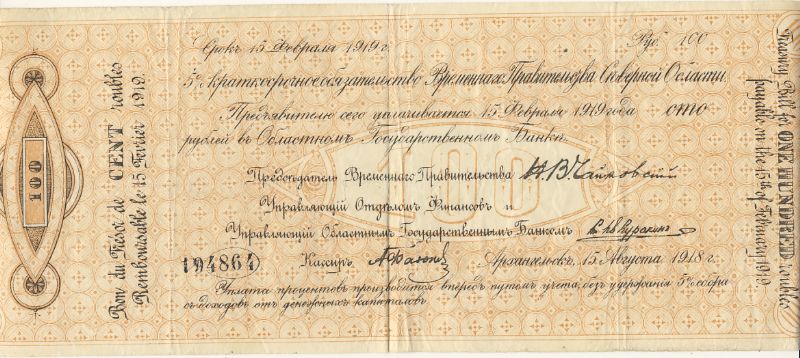 Срокъ 15 Февраля 1919 г.
Руб. 100
5% краткосрочное обязательство Временнаго Правительства Северной Области.
Предъявителю сего уплачивается 15 Февраля 1919 года сто
рублей въ Областномъ Государственномъ Банкѣ.
100
Председатель Временнаго Правительства Н.В. Чайковский
Управляющий Отдѣломъ Финансовъ и
Управляющий Областнымъ Государственнымъ Банкомъ
194864
Кассиръ
Архангельскъ, 15 Августа 1918 г.
Уплата процентовъ производится впередъ путемъ учета, безъ удержания 5% сбора
съ доходовъ отъ денежныхъ капиталовъ.
100
Bon du Trésor de CENT roubles
Remboursable le 15 Février 1919.
Treasury Bill for ONE HUNDRED roubles
payable on the 15th of February 1919.